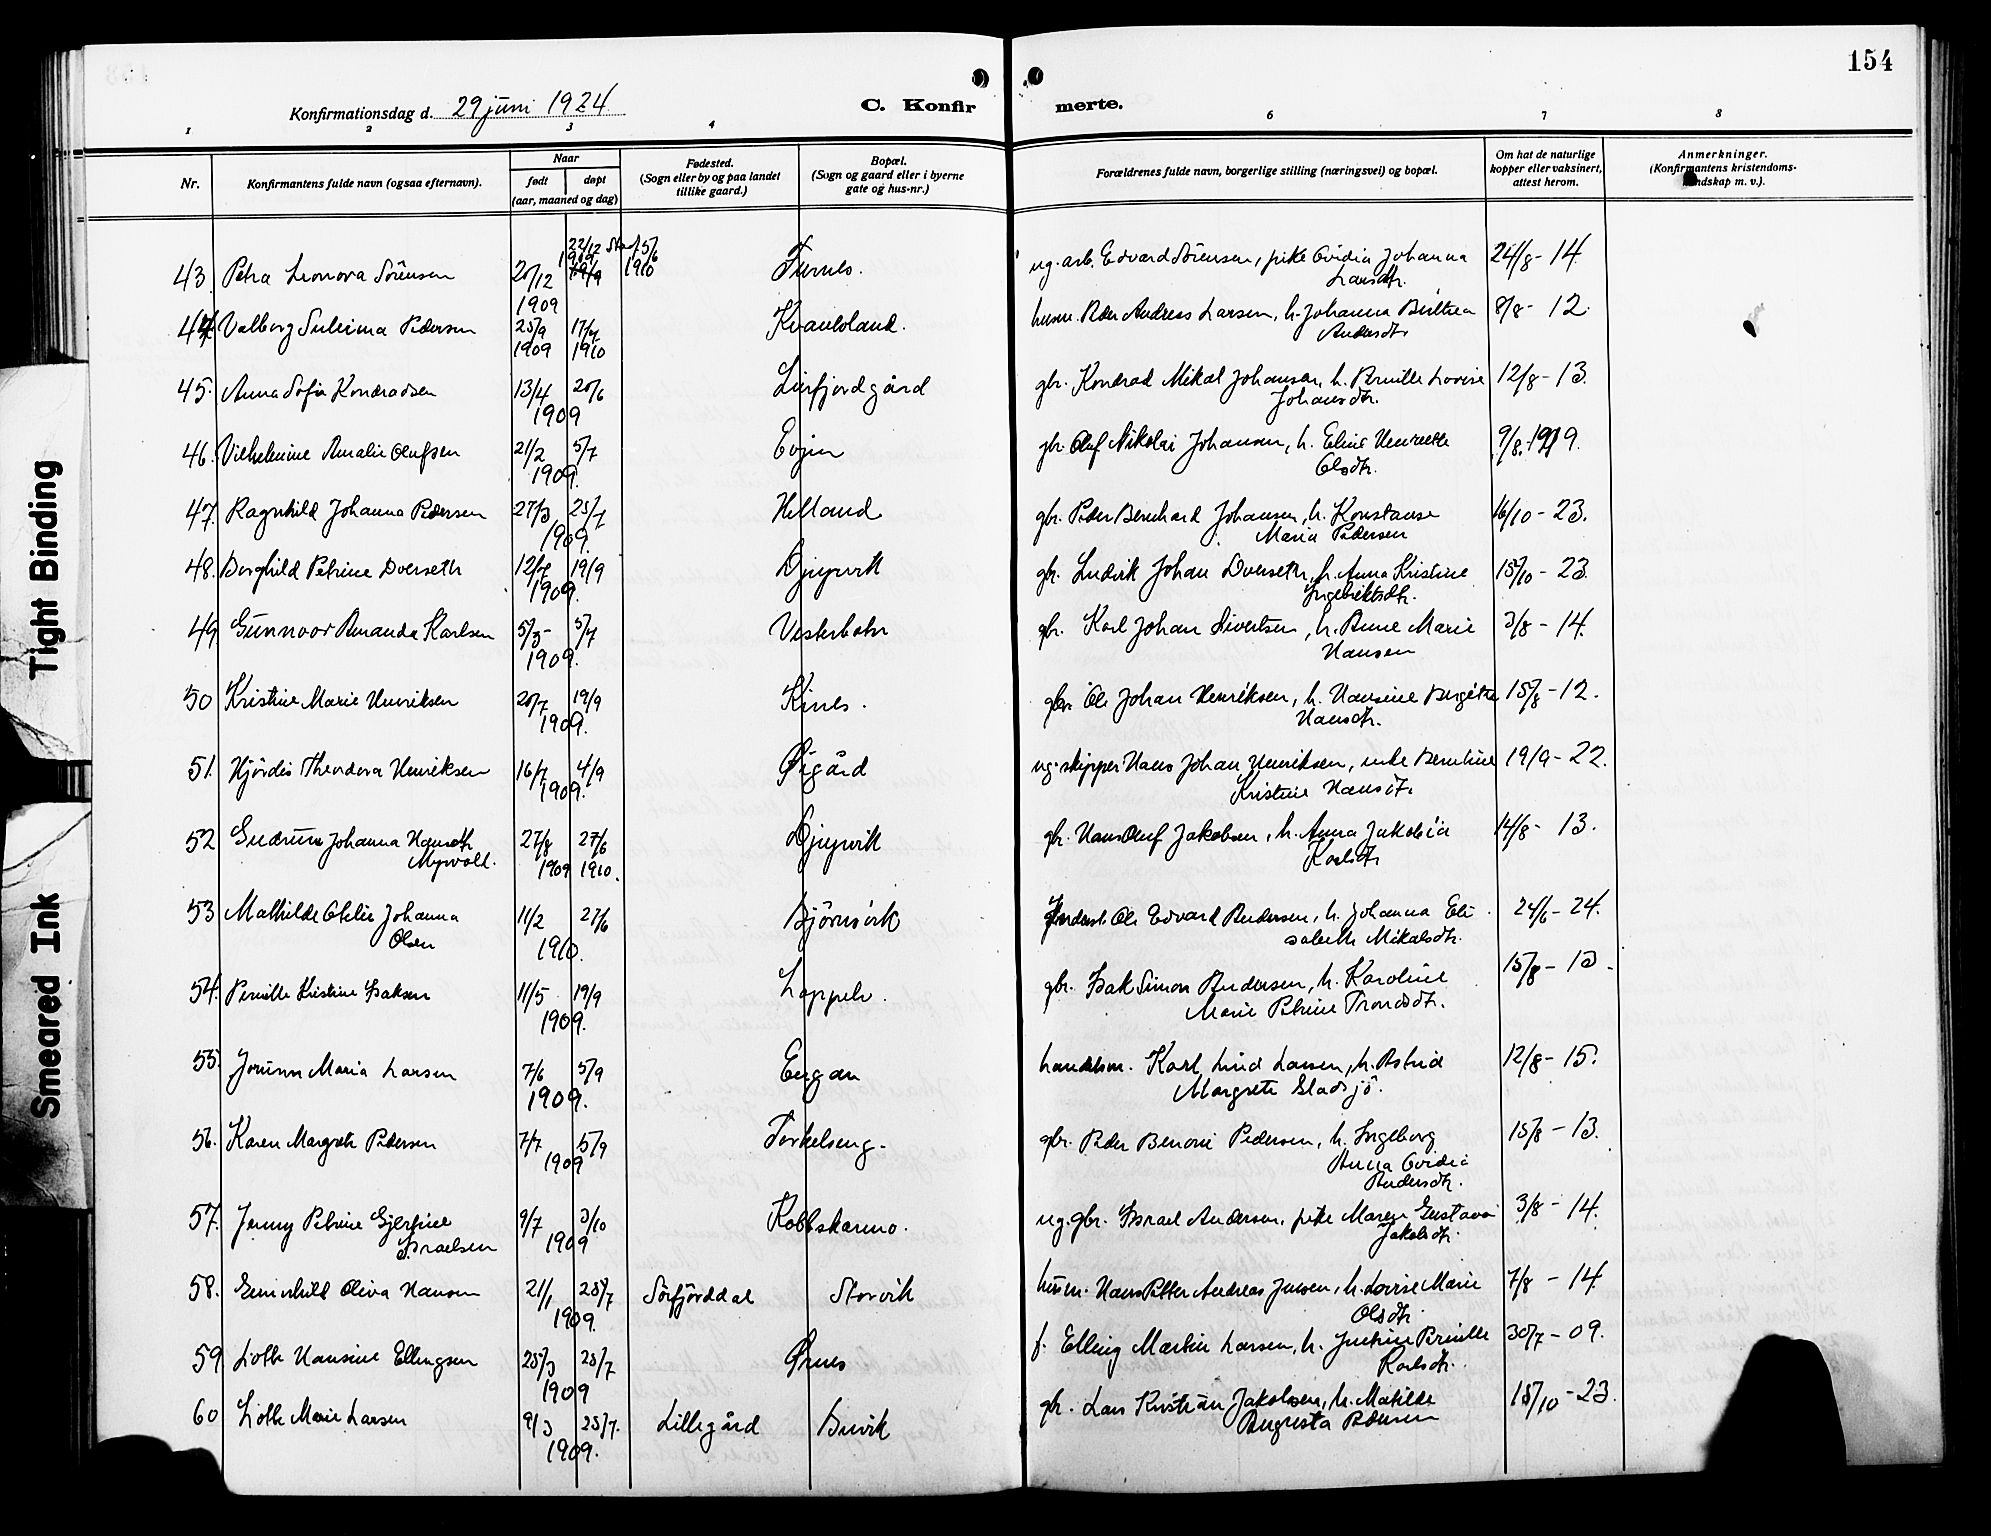 154
Konfirmationsdag d. 29 juni 1924
C. Konfir merte.
1 2 3 4 6 7 8
Nr.
Konfirmantens fulde navn (ogsaa efternavn).
Naar
født døpt
(aar, maaned og dag)
Fødested.
(Sogn eller by og paa landet
tillike gaard.)
Bopæl.
(Sogn og gaard eller i byerne
gate og hus-nr.)
Forældrenes fulde navn, borgerlige stilling (næringsvei) og bopæl.
Om hat de naturlige
kopper eller vaksinert,
attest herom.
Anmerkninger.
(Konfirmantens kristendoms-
kundskap m. v.).
43 Petra Leonora Sörensen 20/12 1909 22/12 1909 1910 Furnes. ug. arb. Edvard Sörensen, pike Ovidia Johanna 24/8 - 14.
Larsdtr.
44 Valborg Pedersen 25/9 1909 17/4 1910 husm. Peder Andreas Larsen, h. Johanna Berthea 8/8 - 12.
Andersdtr
45. Anna Sofie Konradsen 13/4 20/6 Leirfjordgård gbr. Konrad Mikal Johansen, h. Pernille Lovise 12/8 - 13.
1909 Johansdtr.
46. Vilhelmine Amalie Olufsen 21/2 5/7 Evjen gbr. Oluf Nikolai Johansen, h. Eline Henrette 9/8. 1919.
1909. Olsdtr.
47. Ragnhild Johanna Pedersen 27/3 25/7 Helland gbr. Peder Bernhard Johansen, h. Konstanse 16/10 - 23.
1909. Maria Pedersen
48. Borghild Petrine Dverseth 12/7 19/9 Djupvik gbr. Ludvik Johan Dverseth, h. Anna Kristine 15/10 - 23.
1909. Ingebriktsdtr.
49 Gunnvor Amanda Karlsen 5/3 - 5/7 Vesterbotn gbr. Karl Johan Sivertsen, h. Anne Marie 3/8 - 14.
1909. Hansen
50 Kristine Marie Henriksen 20/7 19/9 Kines. gbr. Ole Johan Henriksen, h. Hansine Birgitte 15/8 - 12.
1909. Hansdtr.
51. Hjördis Theodora Henriksen 16/7 4/9 Øigård ug. skipper Hans Johan Henriksen, enke Berntine 19/9 - 22.
1909. Kristine Hansdtr.
52 Gudrun Johanna Hansdtr 27/8 27/6 Djupvik gbr. Hans Oluf Jakobsen, h. Anna Jakobia 14/8 - 13.
Myrvoll. 1909 1910. Karlsdtr
53 Mathilde Otelie Johanna 11/2 27/6 Björnsvik Ole Edvard Andersen, h. Johanna Eli 24/6 - 24.
Olsen 1910. sabeth Mikalsdtr.
54. Pernille Kristine Isaksen 11/5 19/9 gbr. Isak Simon Andersen, h. Karoline 15/8 - 13.
1909. Marie Petrine Trondsdtr.
55. Jorunn Maria Larsen 7/6 5/9 Engan handelsm. Karl Lind Larsen, h. Astrid 12/8 - 15.
1909. Margrete Gladsjö.
56. Karen Margrete Pedersen 7/7 5/9 Torkelseng - gbr. Peder Benoni Pedersen, h. Ingeborg 15/8 - 13.
1909 Anna Ovidia
Andersdtr.
57. Jenny Petrine Gjertine 9/7 3/10 Kobbskarmo. ug. gbr. Israel Andersen, pike Maren Gustava 3/8 - 14.
Israelsen 1909 Jakobsdtr.
58. Gunnhild Oliva Hansen 21/1 25/7 Sörfjorddal Storvik husm. Hans Petter Andreas Jensen, h. Lovise Marie 7/8 - 14
1909. Olsdtr.
59 Lotte Hansine Ellingsen 25/3 25/7 Ørnes f. Elling Martin Larsen, h. Justine Pernille 30/7 - 09.
1909 Karlsdtr.
60 Lotte Marie Larsen 9/3 25/7. Lillegård Buvik gbr. Lars Kristian Jakobsen, h. Matilde 15/10 - 23.
1909. Augusta Pedersen
Tight Binding
Smeared Ink